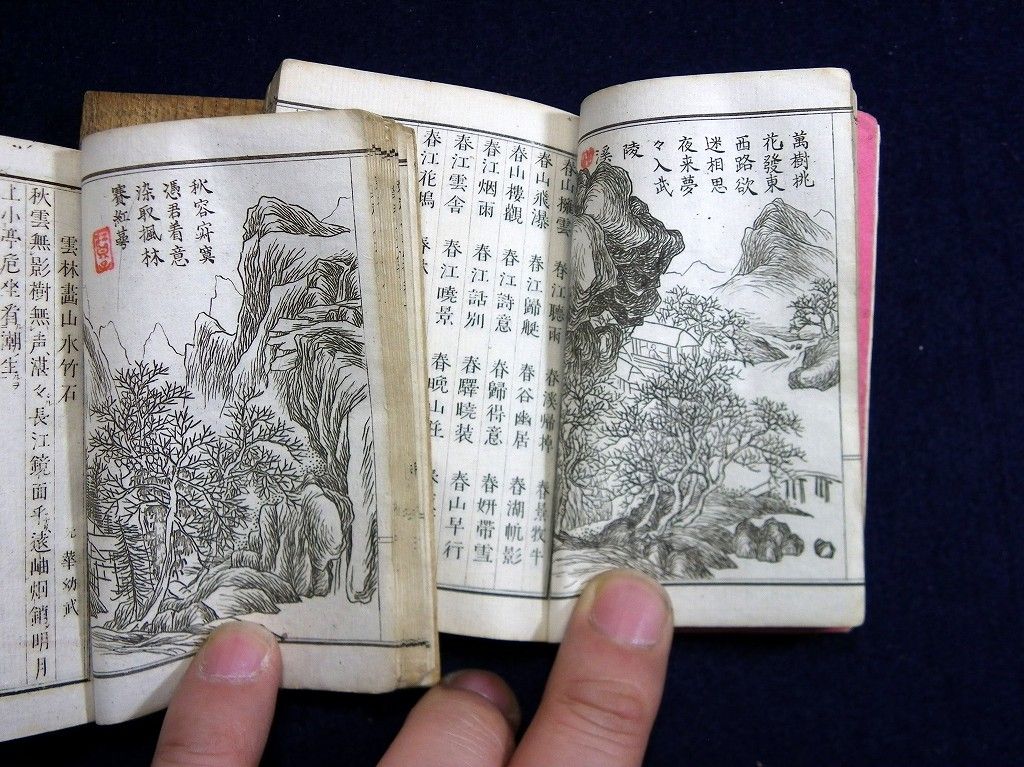 萬樹桃
花發東
西路欲
迷相思
夜来夢
々入武
陵
溪
春山擁雲 春江聽雨 春溪帰棹 春景牧牛
春山飛瀑 春江歸艇 春谷幽居 春湖帆影
春山樓觀 春江詩意 春歸得意 春妍帶雪
春江烟雨 春江話別 春驛曉装 春山早行
春江雲舎 春江曉景 春晩山庄
春江花塢
秋容寂寞
憑君着意
染取楓林
賽紅
雲林畫山水竹石 元 華幼武
秋雲無影樹無声湛々長江鏡面平遠岫烟銷明月
上小亭危坐看潮生